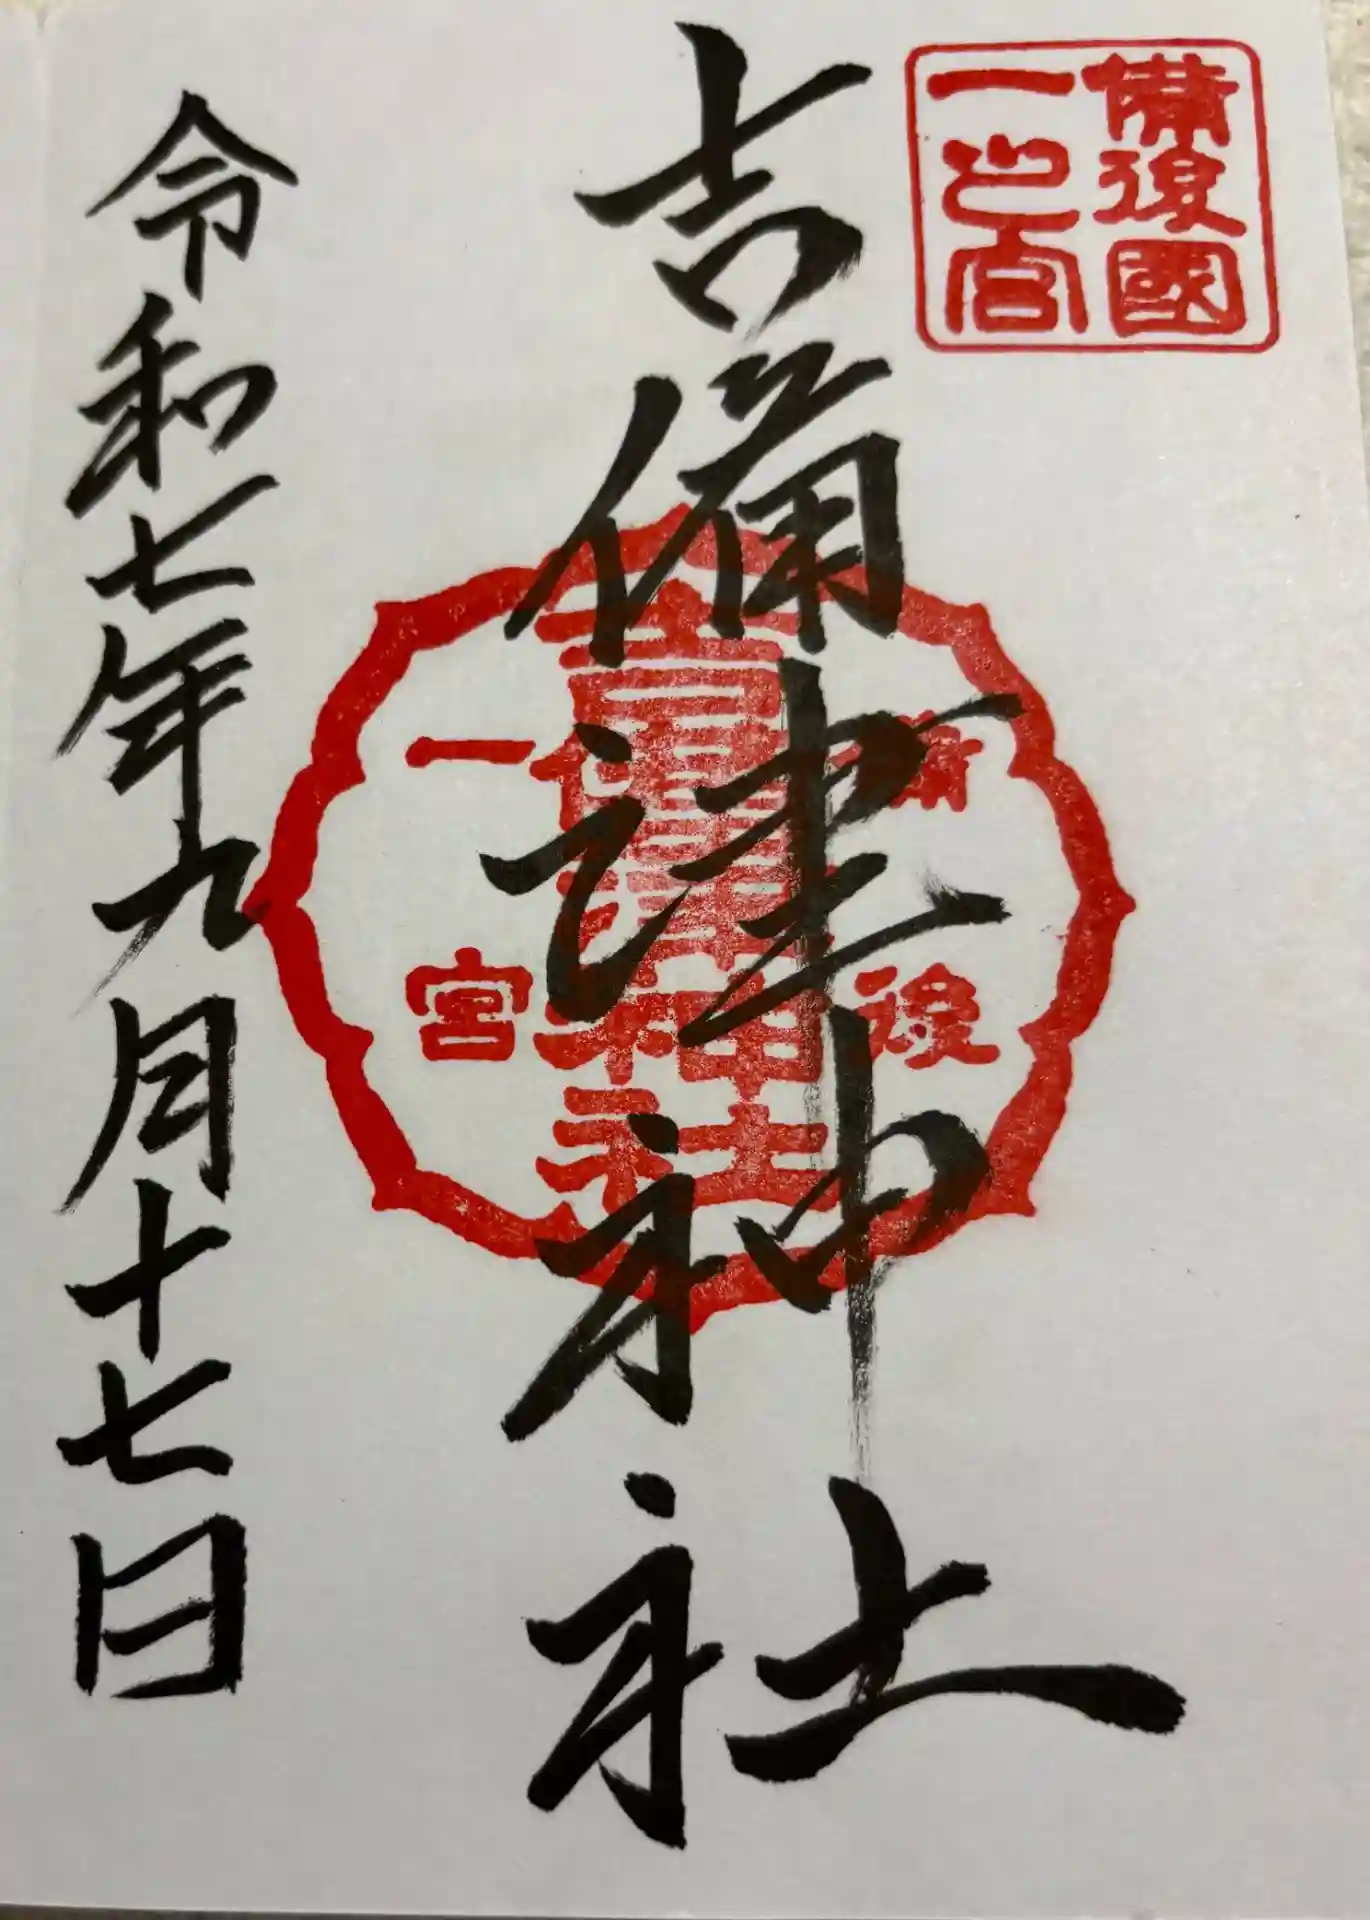 備後國
一之宮
吉備津神社
備後
吉備津神社
一宮
令和七年九月十七日